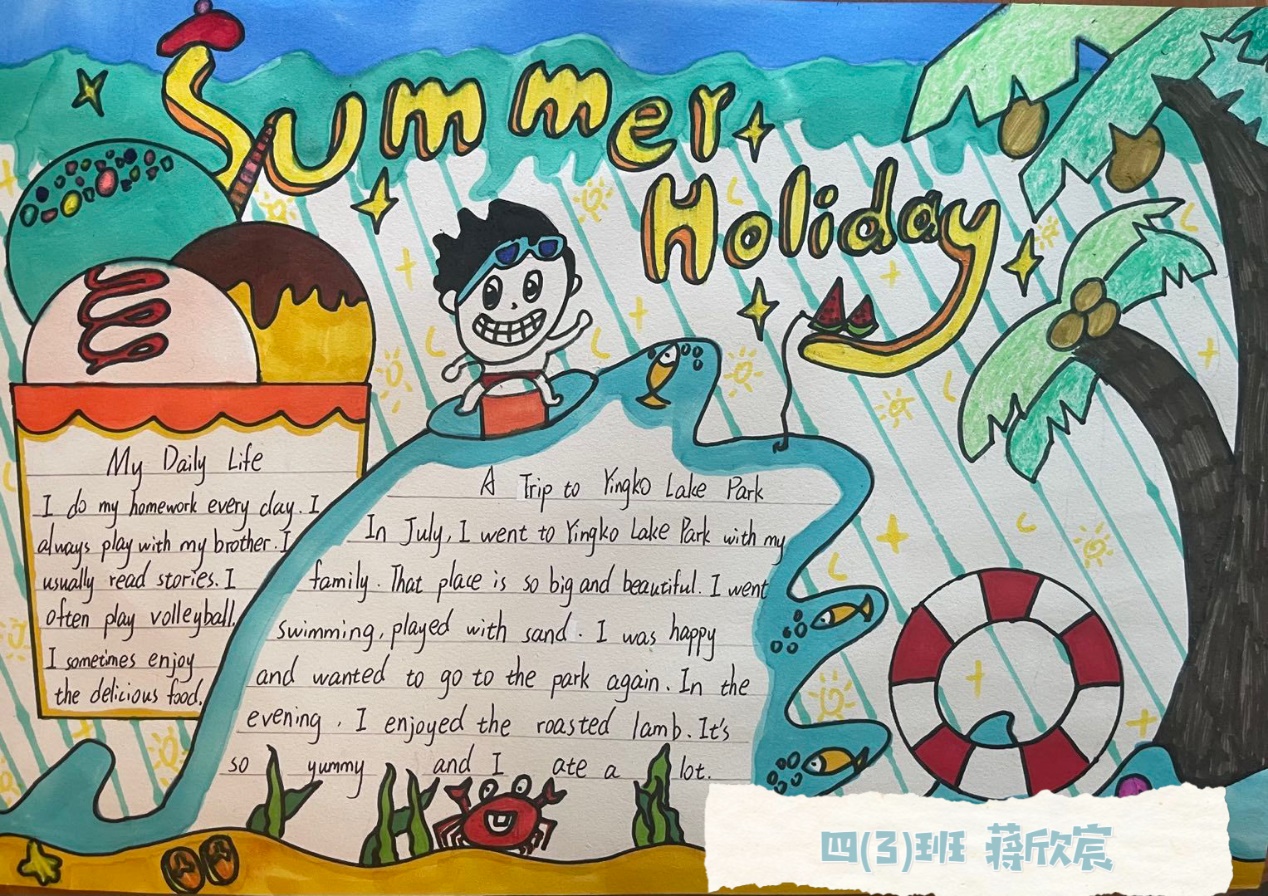 Summer
Holiday
My Daily Life
I do my homework every day. I
always play with my brother. I
usually read stories. I
often play volleyball.
I sometimes enjoy
the delicious food.
A Trip to Yingko Lake Park
In July, I went to Yingko Lake Park with my
family. That place is so big and beautiful. I went
swimming, played with sand. I was happy
and wanted to go to the park again. In the
evening, I enjoyed the roasted lamb. It's
so yummy and I ate a lot.
四(3)班 蒋欣宸